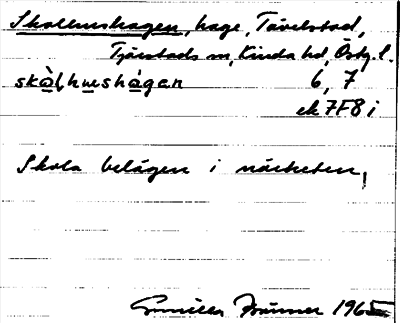 Skolhushagen, hage, Tävelstad,
Tjärstads sn, Kinda hd, Östg. l.
skò̀lhu̲shà̲gan 6, 7
ek 7F8 i
Skola belägen i närheten.
Gunilla Brunner 1965